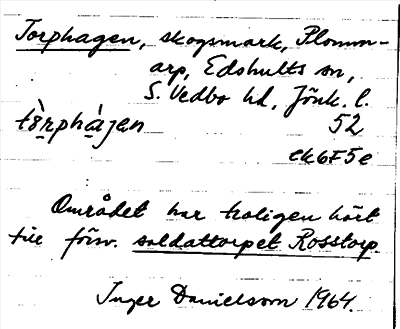 Torphagen, skogsmark, Plomm-
arp, Edshults sn,
S. Vedbo hd, Jönk. l.
tò̱rphà̱jen 52
ek6F5e
Området har troligen hört
till förv. soldattorpet Rosstorp.
Inger Danielsson 1964.